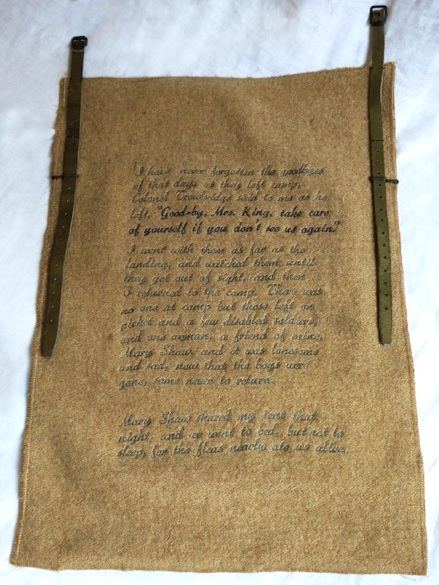 I have never forgotten the goodbyes
of that day, as they left camp,
Colonel Trowbridge said to me as he
left, "Good-by, Mrs. King, take care
of yourself if you don't see us again."
I went with them as far as the
landing, and watched them until
they got out of sight, and then
I returned to the camp. There was
no one at camp but those left on
picket and a few disabled soldiers,
and one woman, a friend of mine,
Mary Shaw, and it was lonesome
and sad, now that the boys were
gone, some never to return.
Mary Shaw shared my tent that
night, and we went to bed, but not to
sleep, for the fleas nearly ate us alive.